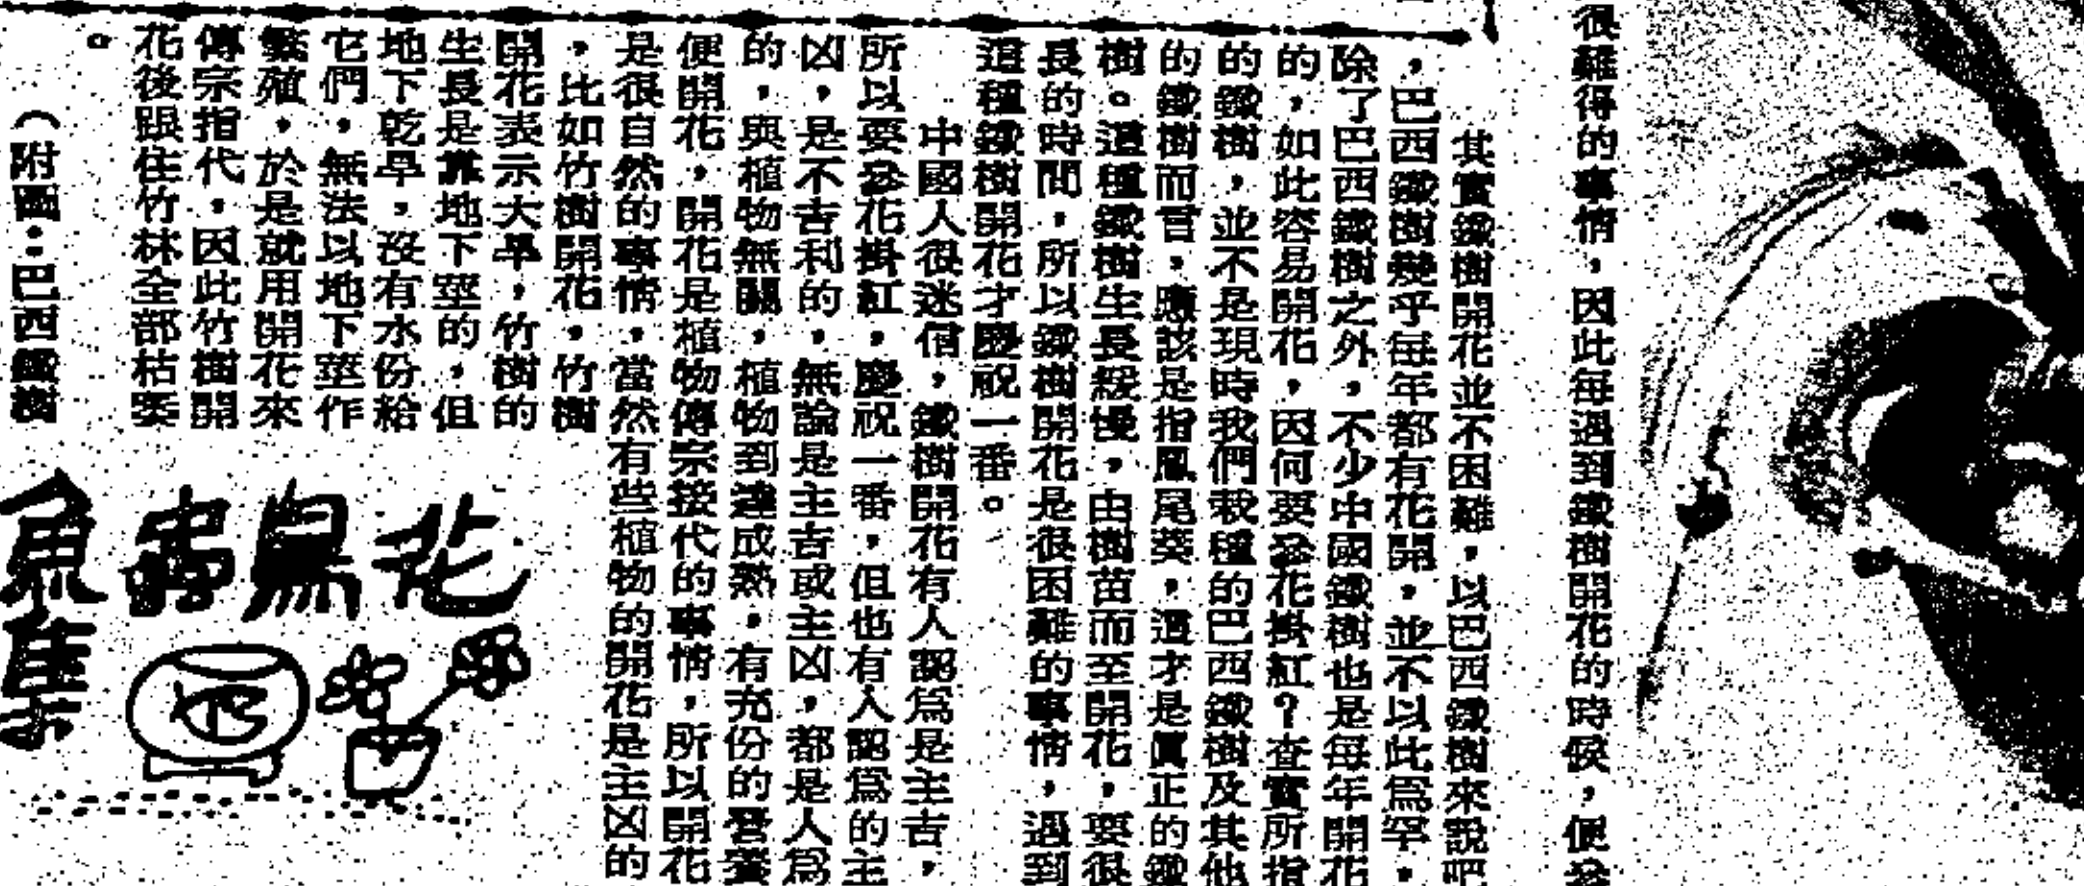 很難得的事情，因此每遇到鐵樹開花的時候，便
其實鐵樹開花並不困難，以巴西鐵樹來說吧
，巴西鐵樹幾乎每年都有花開，並不以此爲罕，
除了巴西鐵樹之外，不少中國鐵樹也是每年開花
的，如此容易開花，因何要簪花掛紅？查實所指
的鐵樹，並不是現時我們栽種的巴西鐵樹及其他
的鐵樹而言，應該是指鳳尾葵，這才是眞正的鐵
樹。這種鐵樹生長緩慢，由樹苗而至開花，要很
長的時間，所以鐵樹開花是很困難的事情，遇到
這種鐵樹開花才慶祝一番。
中國人很迷信，鐵樹開花有人認爲是主吉，
所以要簪花掛紅，慶祝一番，但也有人認爲的主
凶，是不吉利的，無論是主吉或主凶，都是人爲
的，與植物無關，植物到達成熟，有充份的營養
便開花，開花是植物傳宗接代的事情，所以開花
是很自然的事情，當然有些植物的開花是主凶的
，比如竹樹開花，竹樹
開花表示大旱，竹樹的
生長是靠地下莖的，但
地下乾旱，沒有水份給
它們，無法以地下莖作
繁殖，於是就用開花來
傳宗指代，因此竹樹開
花後跟住竹林全部枯萎
。
（附圖：巴西鐵樹
花鳥蟲
魚集